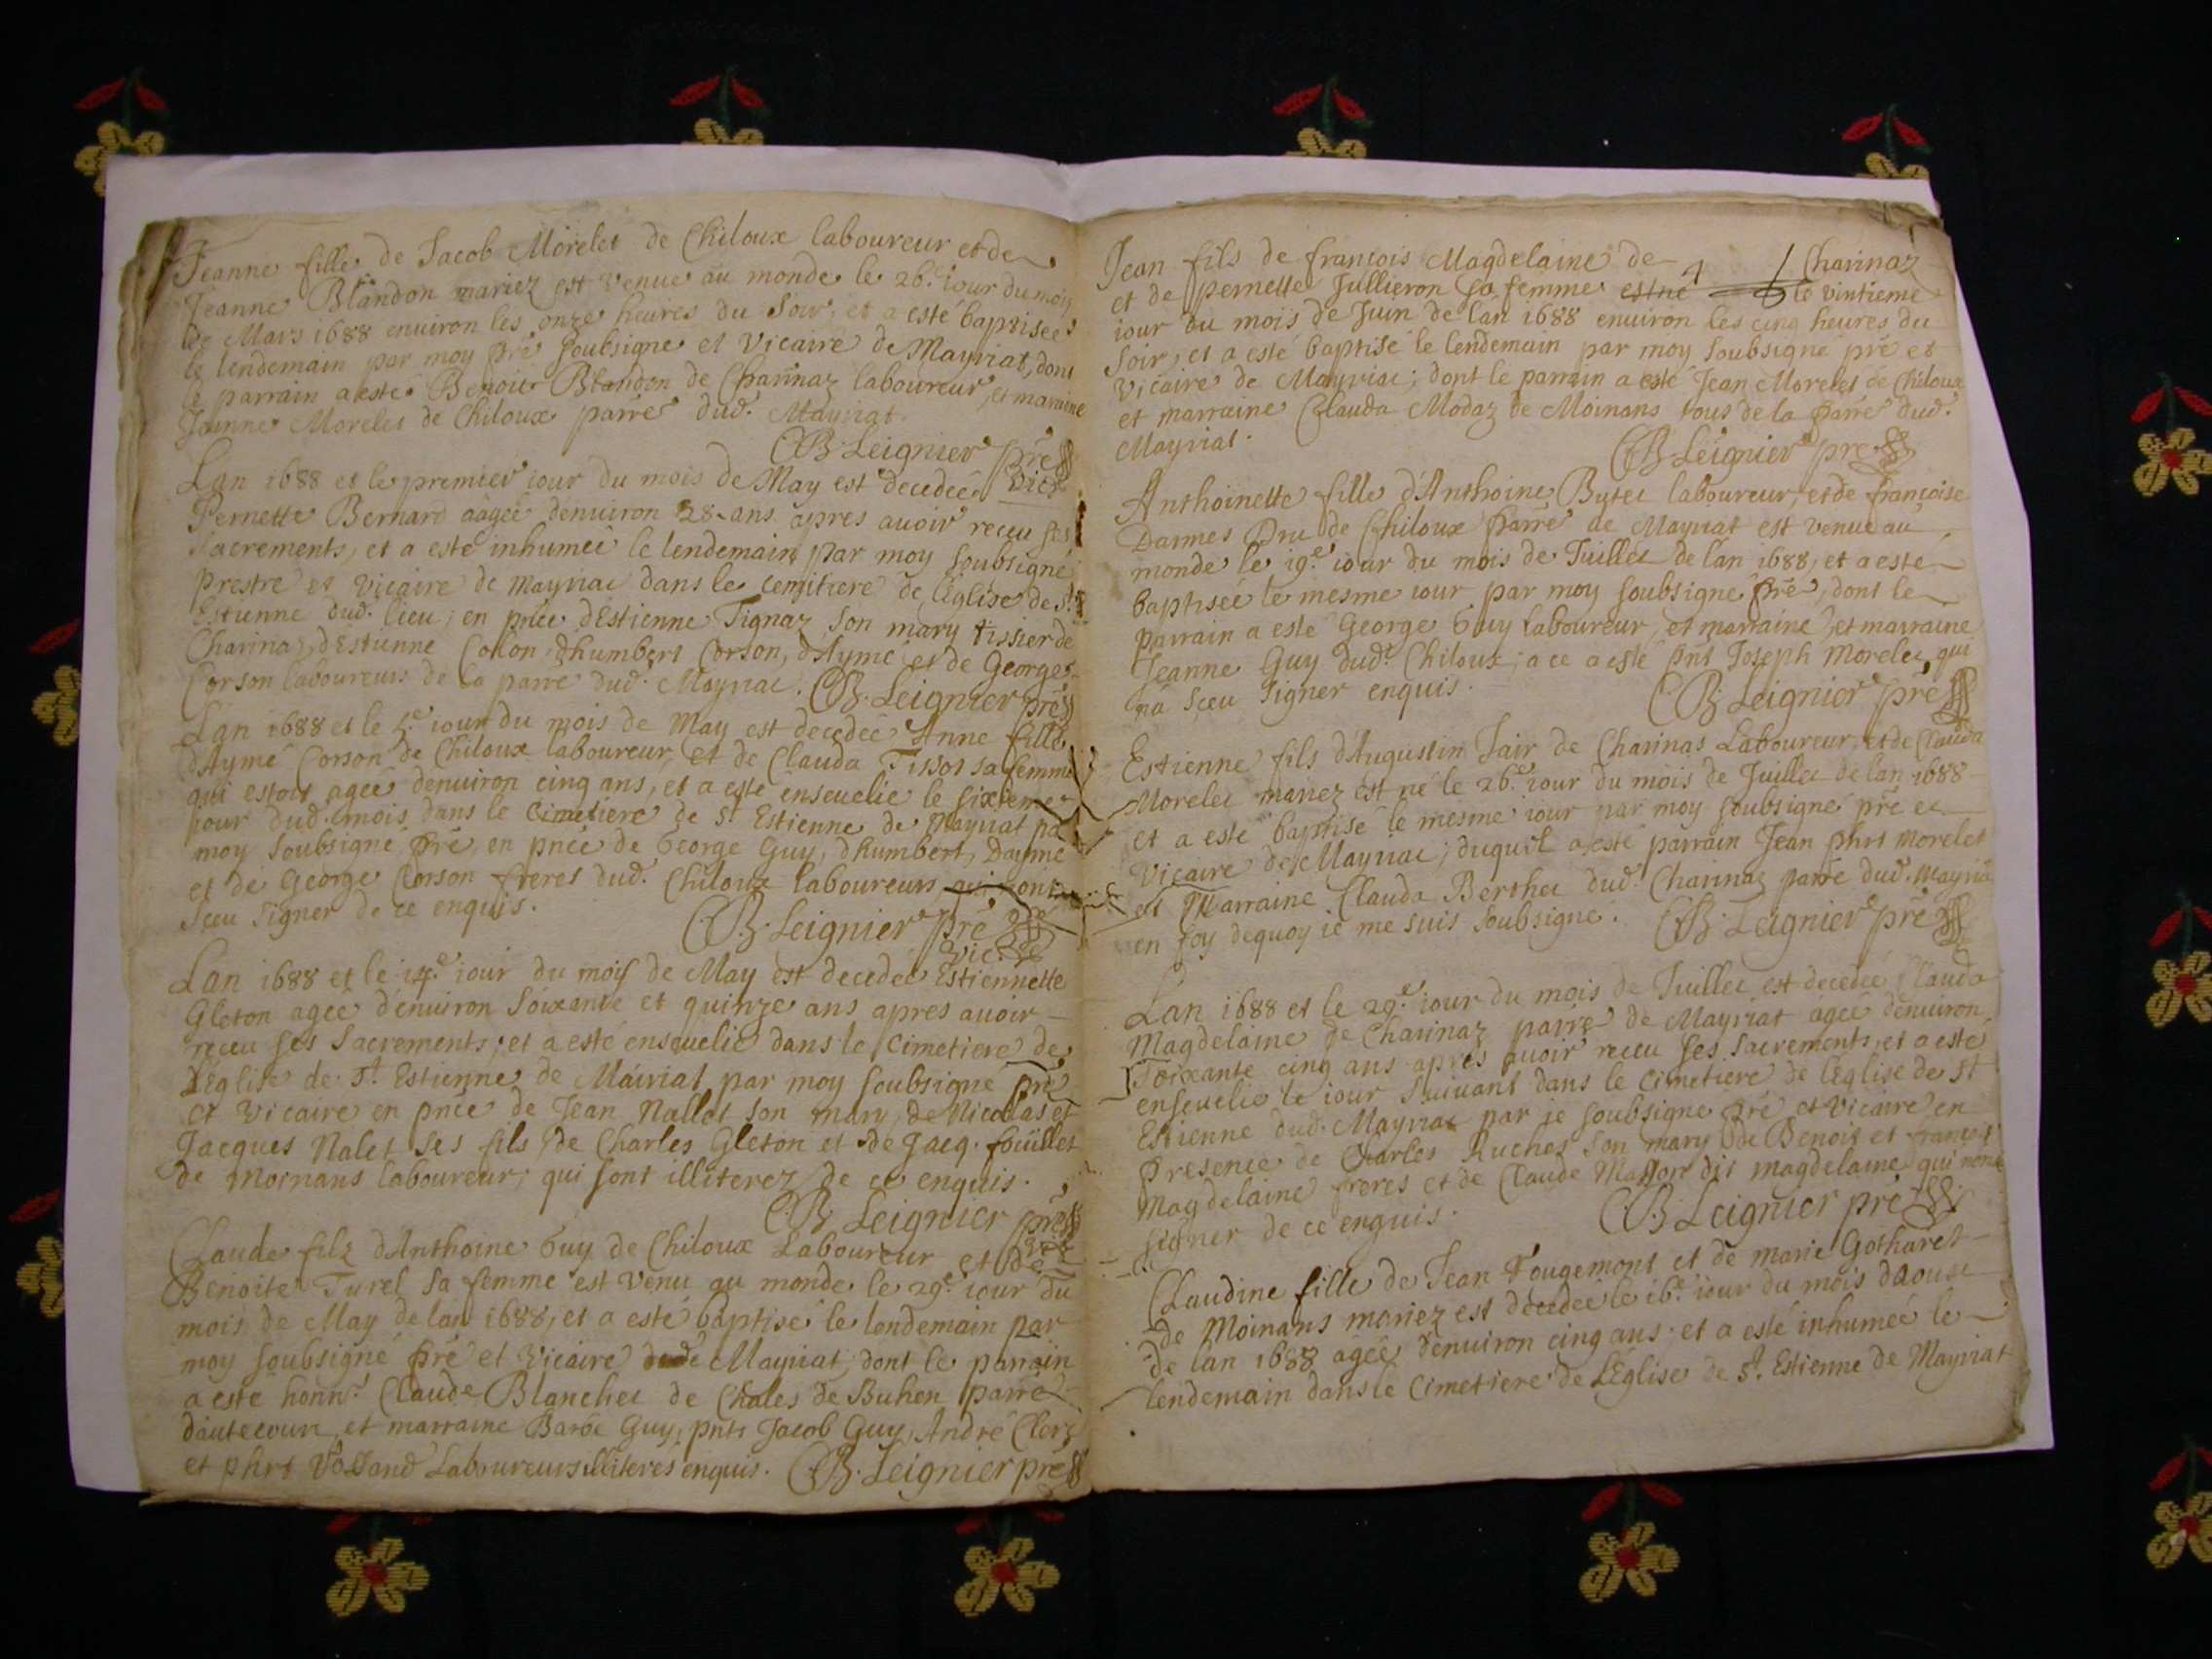 Jeanne fille de Jacob Morelet de Chiloux laboureur et de
Jeanne Blandon mariez est venue au monde le 26.e iour du moy
de Mars 1688 enuiron les onze heures du Soir, et a esté baptisée
le lendemain par moy pré soubsigné et Vicaire de Mayriat, dont
le parrain a esté Benoit Blandon de Charinaz laboureur, et maraine
Jeanne Morelet de Chiloux parré dud. Mayriat.
CB. Leignier pré
vic.
Lan 1688 et le premier iour du mois de May est decedée
Pernette Bernard aagée denuiron 28 ans apres auoir receu ses
Sacrements, et a esté inhumée le lendemain par moy soubsigné
prestre et Vicaire de mayriac dans le cemitiere de léglise de St
Estienne dud. lieu, en pnce dEstienne Tignaz son mary tissier de
Charina, dEstienne Collon dhumbert Corson, dAymé et de George
Corson laboureurs de la parré dud. Mayriac. CB. Leignier pré
Lan 1688 et le 5.e iour du mois de May est decedée Anne fille
dAymé Corson de Chiloux laboureur, et de Clauda Tissot sa femme
qui estoit agée denuiron cinq ans, et a esté enseuelie le sixieme
iour dud. mois dans le Cimetiere de St Estienne de Mayriat pa
moy soubsigné pré, en pnce de George Guy, dhumbert, Daymé
et de George Corson freres dud. Chiloux laboureurs qui nont
sceu signer de ce enquis.
CB. Leignier pré
vic.
Lan 1688 et le 14.e iour du mois de May est decedée Estiennette
Gleton agée denuiron soixante et quinze ans apres auoir
receu ses Sacrements, et a esté enseuelie dans le Cimetiere de
Léglise de St Estienne de Mairiat par moy soubsigné pré
et Vicaire en pnce de Jean Nallet son mary, de Nicolas et
Jacques Nalet ses fils, de Charles Gleton et de Jacq. fouillet
de Moinans laboureur, qui sont illiterez de ce enquis.
CB. Leignier pré
vic.
Claude filz dAnthoine Guy de Chiloux Laboureur et de
Benoite Turel sa femme est venu au monde le 29.e iour du
mois de May de lan 1688, et a esté baptisé le lendemain par
moy soubsigné pré et Vicaire dud. Mayriat, dont le parrain
a esté honn. Claude Blanchet de Chales de Buhen parré
dautecour, et marraine Barbe Guy, pnts Jacob Guy, André Clerz
et phrt Volland Laboureurs illiteres enquis. CB. Leignier pré
Jean fils de françois Magdelaine de Charinaz
et de pernette Jullieron sa femme est né le vintieme
iour du mois de Juin de lan 1688 enuiron les cinq heures du
soir, et a esté baptisé le lendemain par moy soubsigné pré et
Vicaire de Mayriac; dont le parrain a esté Jean Morelet de Chiloux
et marraine Clauda Modaz de Moinans tous de la parré dud.
Mayriat.
CB. Leignier pré
Anthoinette fille d'Anthoine Bytet laboureur, et de françoise
Darmes Dru de Chiloux parré de Mayriat est venue au
monde le 19.e iour du mois de Juillet de lan 1688, et a esté
baptisée le mesme iour par moy soubsigné pré, dont le
parrain a esté George Guy laboureur, et marraine, et marraine
Jeanne Guy dud. Chiloux; a ce a esté pnt Joseph Morelet, qui
na sceu signer enquis.
CB. Leignier pré
Estienne fils d'Augustin Jair de Charinas Laboureur, et de Clauda
Morelet mariez est né le 26.e iour du mois de Juillet de lan 1688
et a esté baptisé le mesme iour par moy soubsigné pré et
Vicaire de Mayriac; duquel a esté parrain Jean phrt Morelet
et Marraine Clauda Berthet dud. Charinaz parré dud. Mayria
en foy dequoy ié me suis soubsigné. CB. Leignier pré
Lan 1688 et le 29.e iour du mois de Juillet est decedée Clauda
Magdelaine de Charinaz parré de Mayriat agée denuiron
Soixante cinq ans apres auoir receu ses Sacrements, et a esté
enseuelie le iour suiuant dans le cimetiere de léglise de St
Estienne dud. Mayriat par je soubsigné pré et Vicaire en
presence de Charles Ruchet son mary de Benoit et françois
Magdelaine freres et de Claude Masson dit magdelaine qui nont
signer de ce enquis.
CB. Leignier pré
Claudine fille de Jean Fougemont et de marie Gotharet
de Moinans mariez est decedée le 16.e iour du mois daoust
de lan 1688 agée denuiron cinq ans, et a esté inhumée le
lendemain dans le Cimetiere de LEglise de St. Estienne de Mayriat